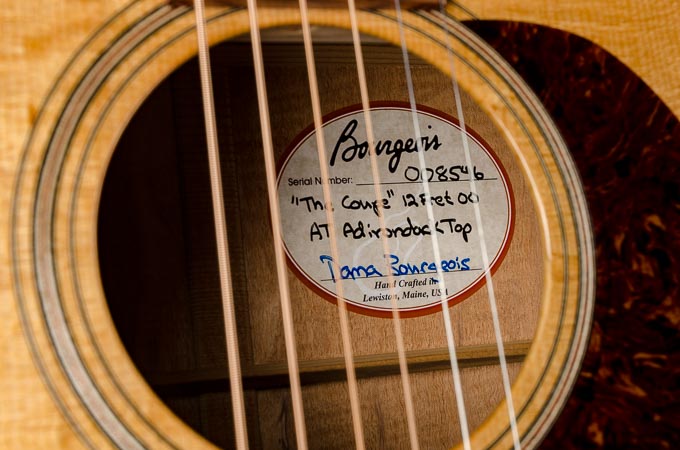 Bourgeois
Serial Number: 008546
"The Coupe" 12 Fret 00
AT Adirondack Top
Dana Bourgeois
Hand Crafted in
Lewiston, Maine, USA